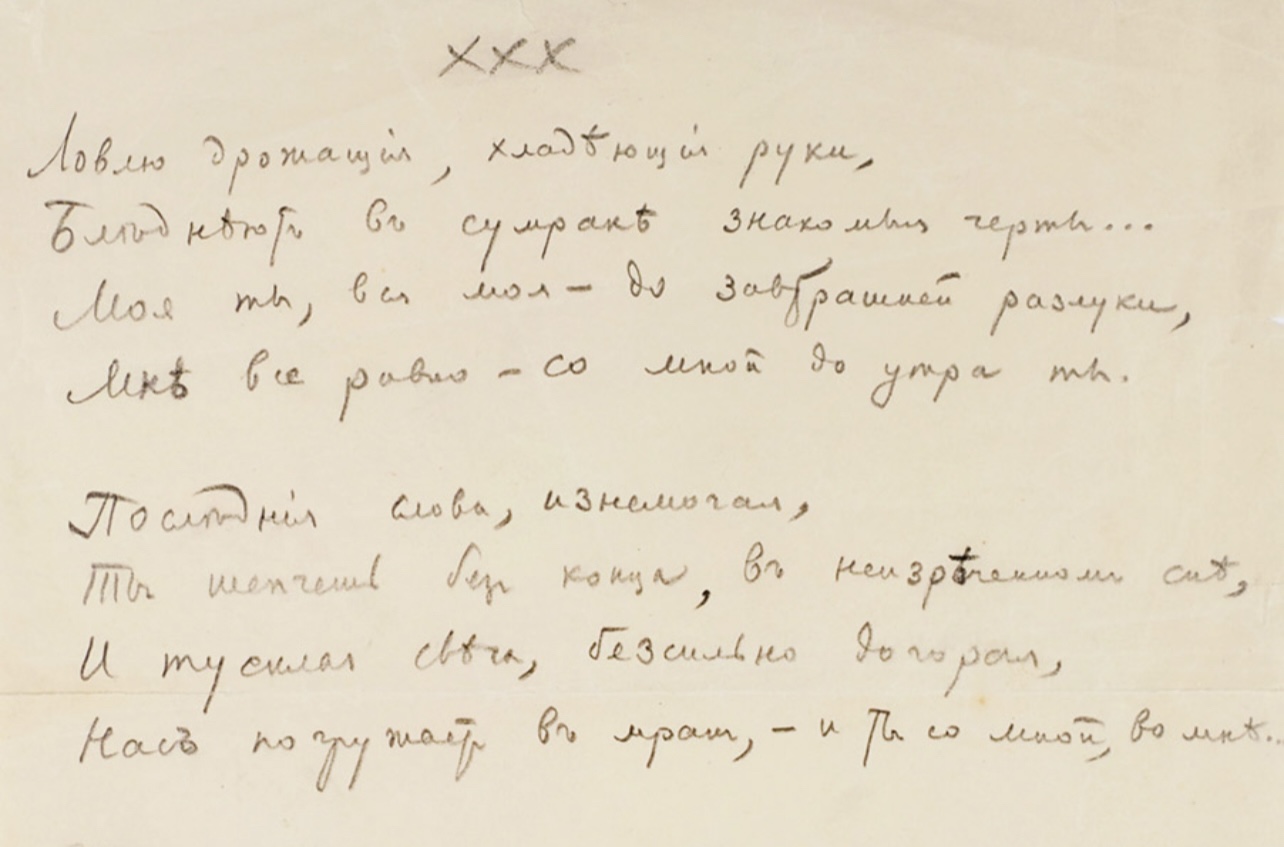 ххх
Ловлю дрожащія, хладѣющія руки,
Блѣднѣютъ въ сумракѣ знакомыя черты...
Моя ты, вся моя – до завтрашней разлуки,
Мнѣ все равно – со мной до утра ты.
Послѣднія слова, изнемогая,
Ты шепчешь без конца, въ неизрѣченномъ снѣ,
И тусклая свѣча, безсильно догорая,
Насъ погружаетъ въ мракъ, – и ты со мной, во мнѣ...